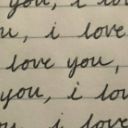 you, i love
u, i love
love you,
you, i lov
u, i love